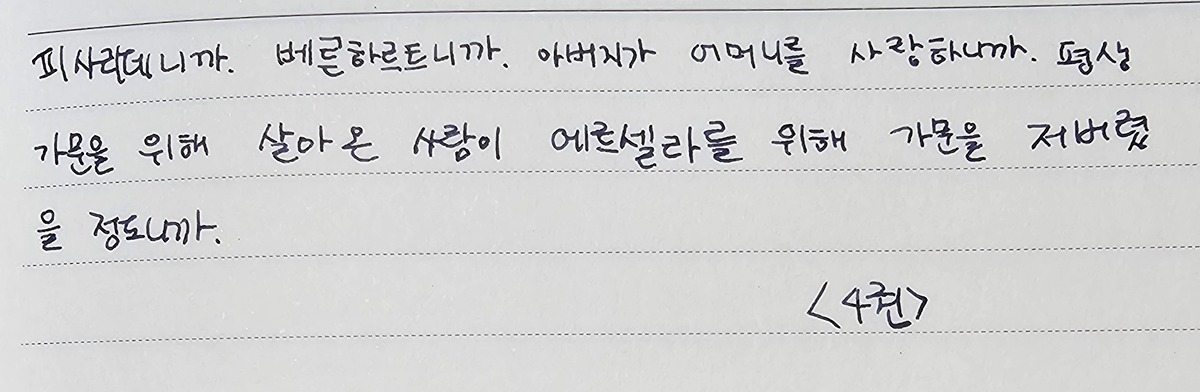 피사르데니까. 베른하르트니까. 아버지가 어머니를 사랑하니까. 평생
가문을 위해 살아온 사람이 에르셀라를 위해 가문을 저버렸
을 정도니까.
<4권>